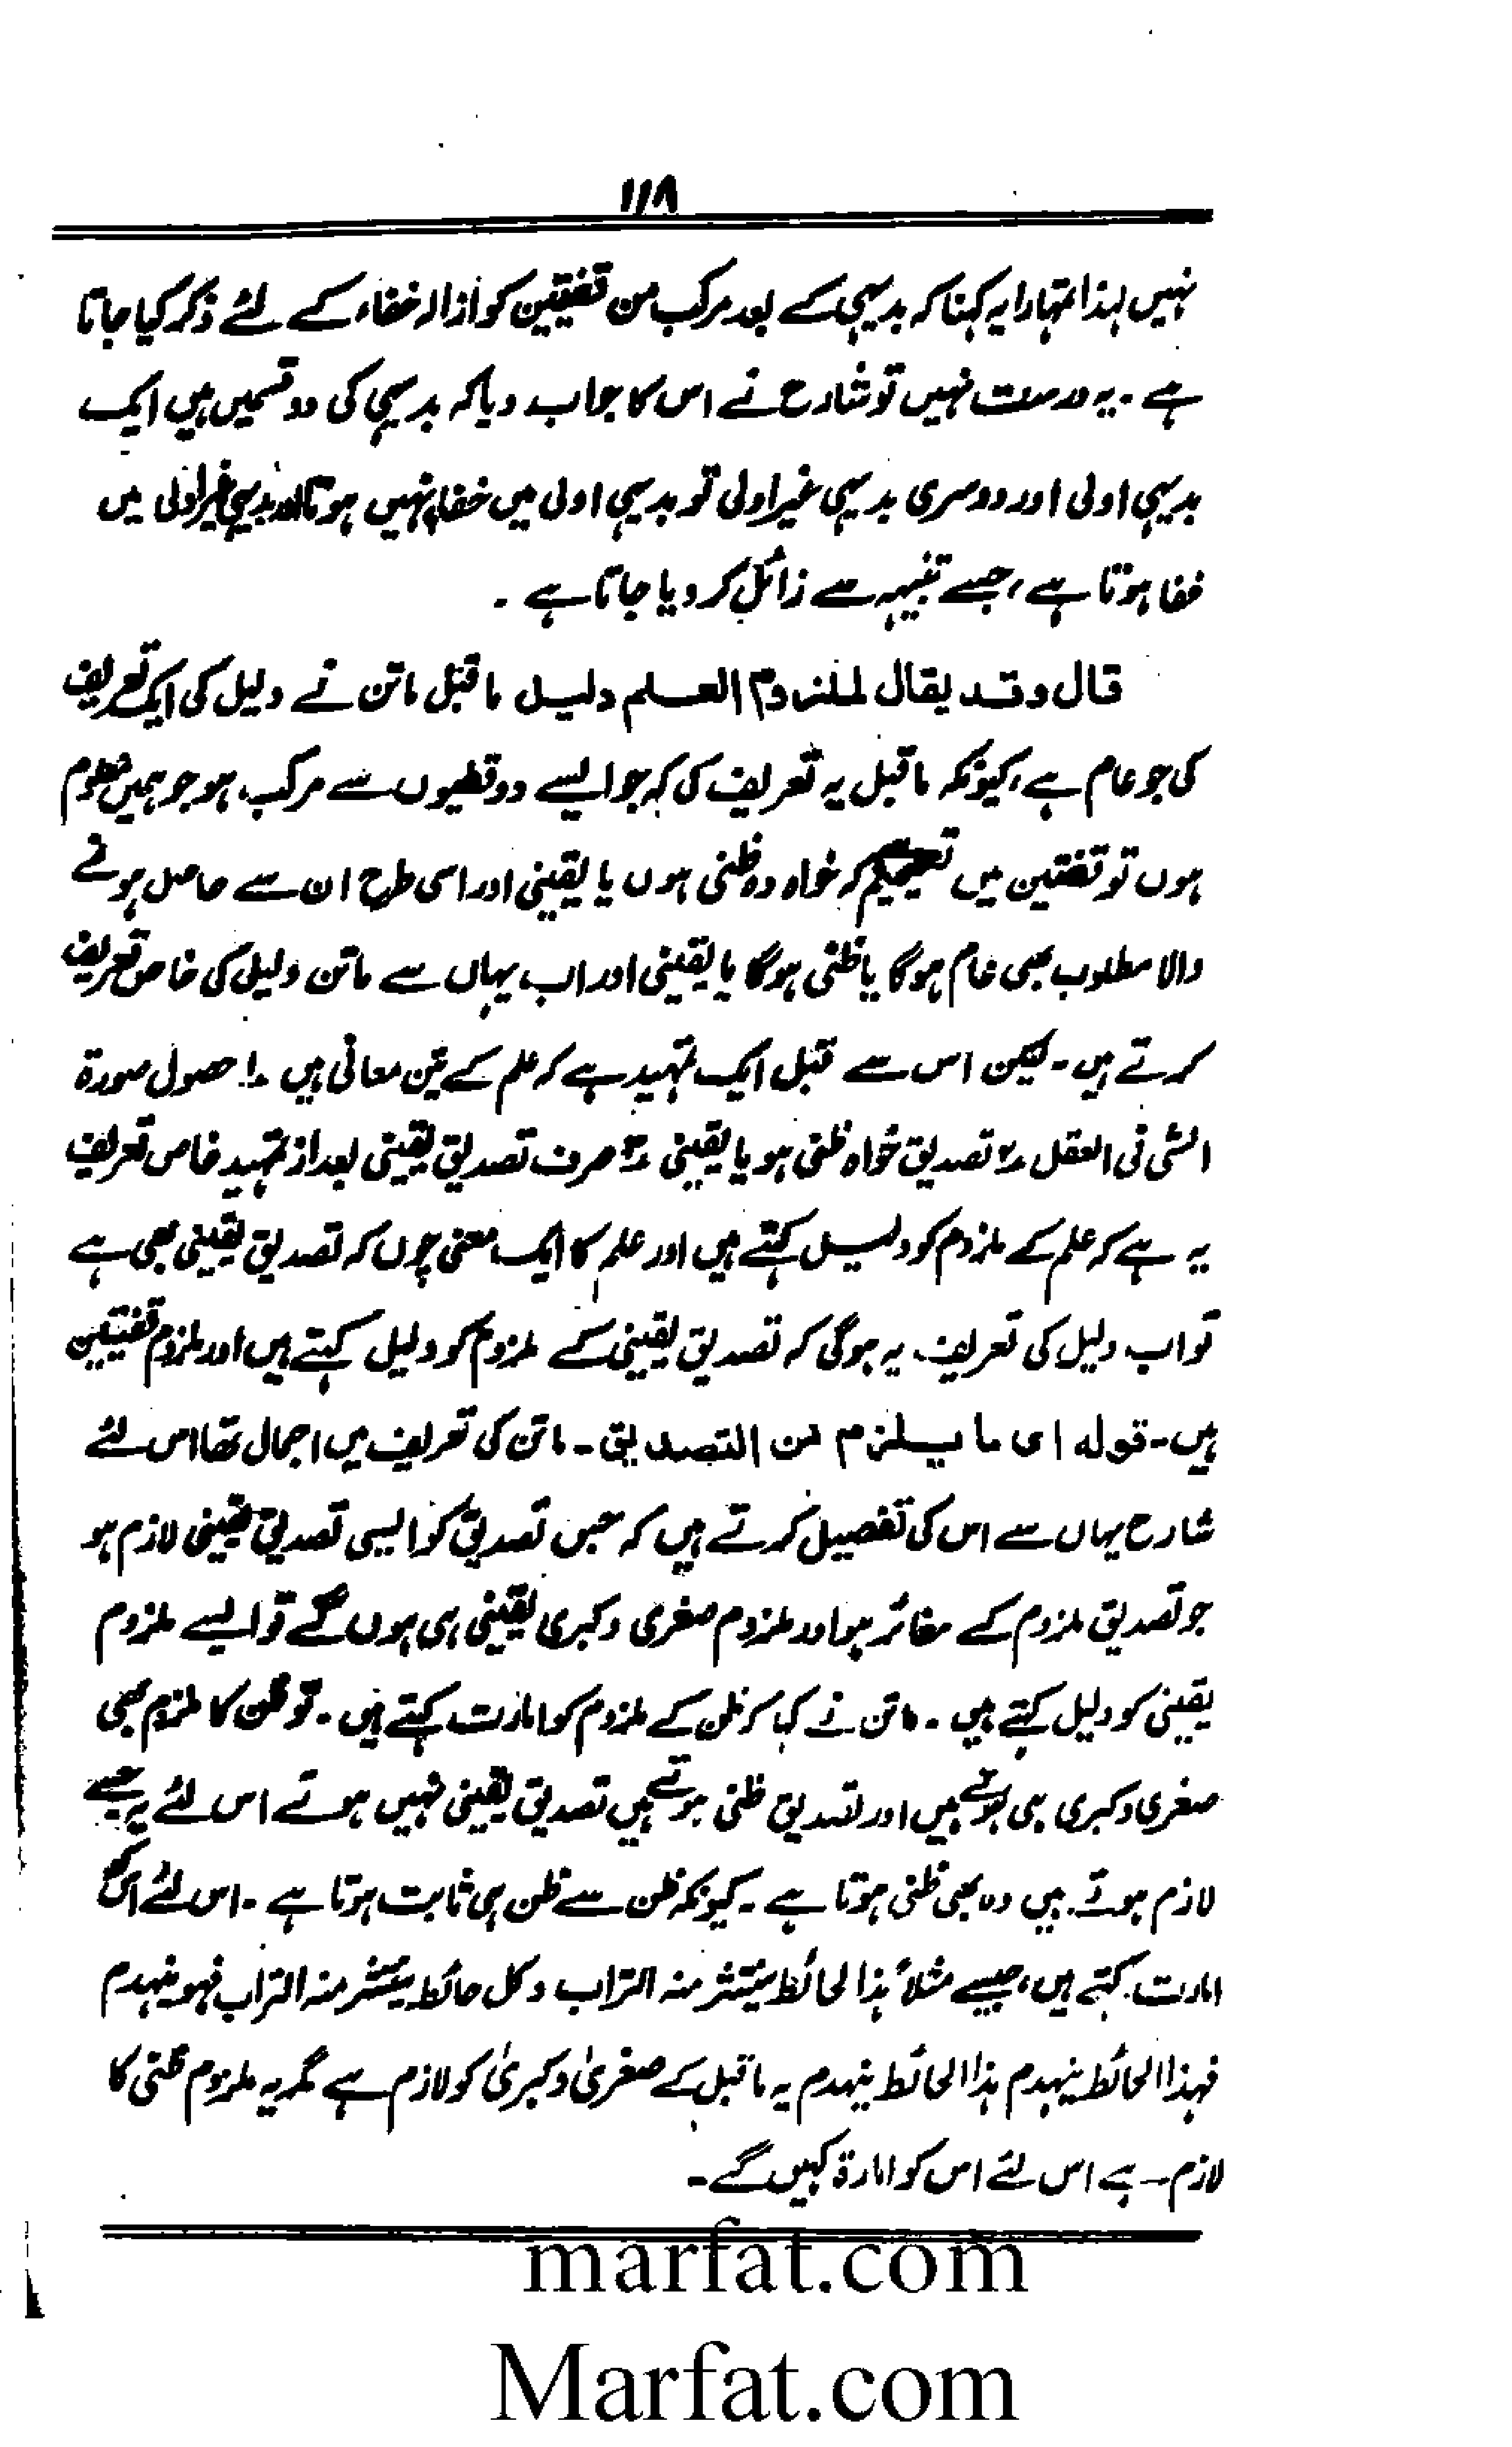 ۱۱۸
نہیں لہذا تمہارا یہ کہنا کہ بدیہی کے بعد مرکب من قضیتین کو ازالہ خفاء کے لئے ذکر کیا جاتا
ہے ۔ یہ درست نہیں تو شارح نے اس کا جواب دیا کہ بدیہی کی دو قسمیں ہیں ایک
بدیہی اولی اور دوسری بدیہی غیر اولی تو بدیہی اولی میں خفا نہیں ہوتا اور بدیہی غیر اولی میں
خفا ہوتا ہے، جسے تنبیہہ سے زائل کر دیا جاتا ہے ۔
قال وقد یقال لملزوم العلم دلیل ماقبل ماتن نے دلیل کی ایک تعریف
کی جو عام ہے، کیونکہ ماقبل یہ تعریف کی کہ جو ایسے دو قضیوں سے مرکب ہو جو ہمیں معلوم
ہوں تو قضتین میں تعمیم کہ خواہ وہ ظنی ہوں یا یقینی اور اسی طرح ان سے حاصل ہونے
والا مطلوب بھی عام ہوگا یا ظنی ہوگا یا یقینی اور اب یہاں سے ماتن دلیل کی خاص تعریف
کرتے ہیں ۔ لیکن اس سے قبل ایک تمہید ہے کہ علم کے تین معانی ہیں ۱؎ حصول صورۃ
الشی فی العقل ۲؎ تصدیق خواہ ظنی ہو یا یقینی ۳؎ صرف تصدیق یقینی بعد از تمہید خاص تعریف
یہ ہے کہ علم کے ملزوم کو دلیل کہتے ہیں اور علم کا ایک معنی چوں کہ تصدیق یقینی بھی ہے
تو اب دلیل کی تعریف یہ ہوگی کہ تصدیق یقینی کے ملزوم کو دلیل کہتے ہیں اور ملزوم قضیتین
ہیں ۔ قولہ ای ما یلزم من التصدیق ۔ ماتن کی تعریف میں اجمال تھا اس لئے
شارح یہاں سے اس کی تفصیل کرتے ہیں کہ جس تصدیق کو ایسی تصدیق یقینی لازم ہو
جو تصدیق ملزوم کے مغائر ہو اور ملزوم صغری و کبری یقینی ہی ہوں گے تو ایسے ملزوم
یقینی کو دلیل کہتے ہیں ۔ ماتن نے کہا کہ ظن کے ملزوم کو امارت کہتے ہیں ۔ تو ظن کا ملزوم بھی
صغری و کبری ہی ہوتے ہیں اور تصدیق ظنی ہوتے ہیں تصدیق یقینی نہیں ہوتے اس لئے یہ جسے
لازم ہوتے ہیں وہ بھی ظنی ہوتا ہے ۔ کیونکہ ظن سے ظن ہی ثابت ہوتا ہے ۔ اس لئے اس کو
امارت کہتے ہیں، جیسے مثلاً ہذا الحائط ینتثر منہ التراب وکل حائط ینتثر منہ التراب فہو ینہدم
فہذا الحائط ینہدم ہذا الحائط ینہدم یہ ماقبل کے صغریٰ و کبریٰ کو لازم ہے مگر یہ ملزوم ظنی کا
لازم ہے اس لئے اس کو امارۃ کہیں گے ۔
marfat.com
Marfat.com